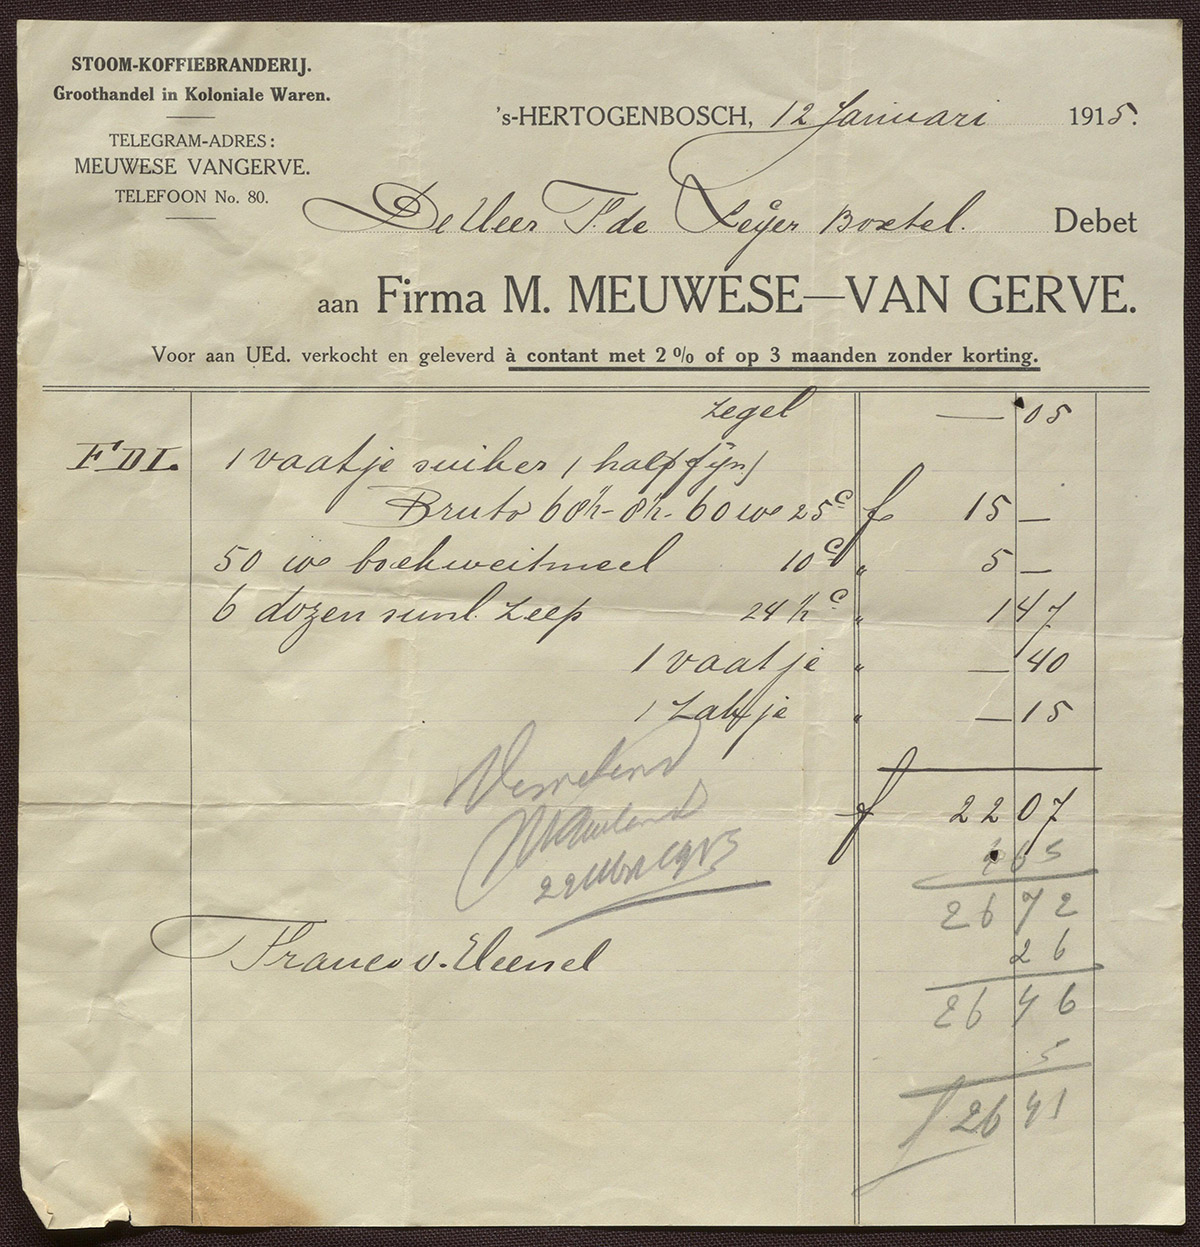 STOOM-KOFFIEBRANDERIJ.
Groothandel in Koloniale Waren.
TELEGRAM-ADRES:
MEUWESE VANGERVE.
TELEFOON No. 80.
's-HERTOGENBOSCH, 12 Januari 1915.
De Heer F. de Leÿer Boxtel. Debet
aan Firma M. MEUWESE—VAN GERVE.
Voor aan UEd. verkocht en geleverd à contant met 2 % of op 3 maanden zonder korting.
zegel — 05
FDL. 1 vaatje suiker (half fijn)
Bruto 68 ½ - 8 ½ - 60 25 c f 15 —
50 boekweitmeel 10 c " 5 —
6 dozen sunl. zeep 24 ½ c " 1 47
1 vaatje " — 40
1 zakje " — 15
f 22 07
4 65
26 72
26
26 46
5
f 26 41
Franco v. Heesel